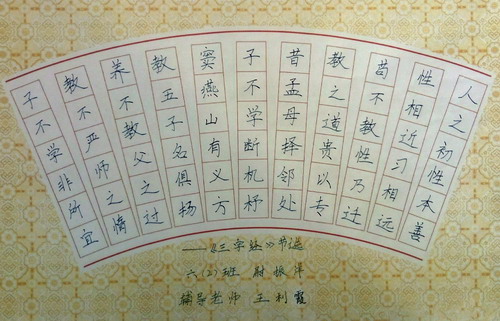 人之初性本善
性相近习相远
苟不教性乃迁
教之道贵以专
昔孟母择邻处
子不学断机杼
窦燕山有义方
教五子名俱扬
养不教父之过
教不严师之惰
子不学非所宜
——《三字经》节选
六(2)班 尉振洋
辅导老师 王利霞